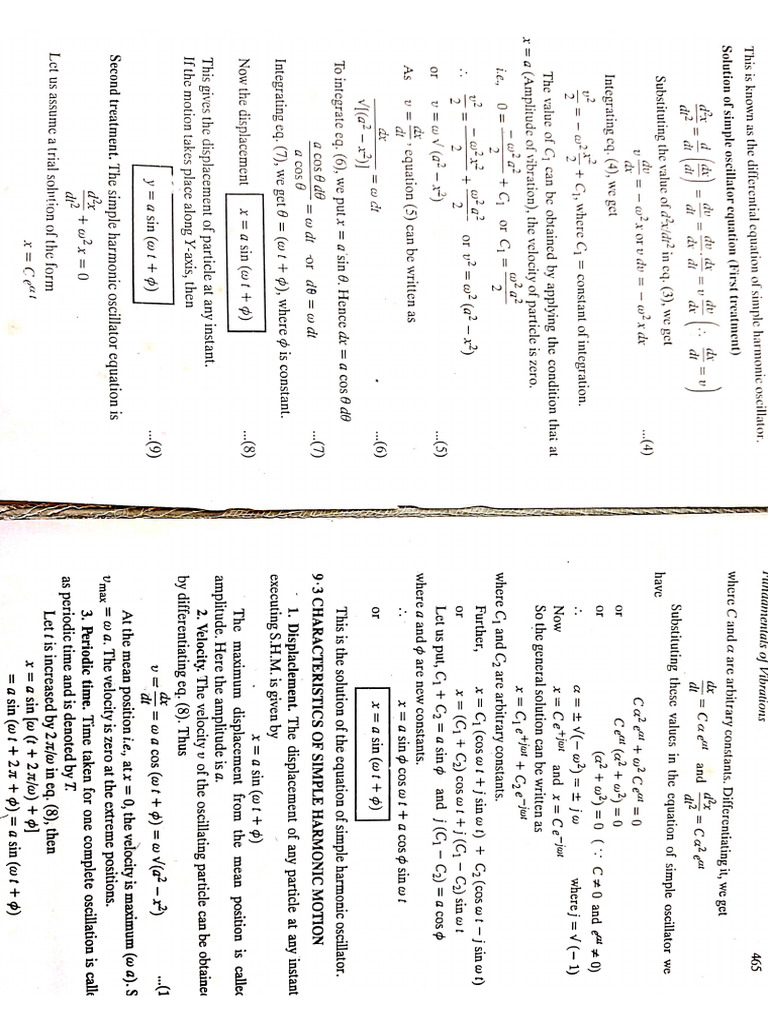 This is known as the differential equation of simple harmonic oscillator.
Solution of simple oscillator equation (First treatment)
d²x/dt² = d/dt (dx/dt) = dv/dt = dv/dx dx/dt = v dv/dx (∵ dx/dt = v)
Substituting the value of d²x/dt² in eq. (3), we get
v dv/dx = − ω² x or v dv = − ω² x dx ...(4)
Integrating eq. (4), we get
v²/2 = − ω² x²/2 + C₁, where C₁ = constant of integration.
The value of C₁ can be obtained by applying the condition that at
x = a (Amplitude of vibration), the velocity of particle is zero.
i.e., 0 = − ω² a²/2 + C₁ or C₁ = ω² a²/2
∴ v²/2 = − ω² x²/2 + ω² a²/2 or v² = ω² (a² − x²)
or v = ω √(a² − x²) ...(5)
As v = dx/dt, equation (5) can be written as
dx/√[(a² − x²)] = ω dt ...(6)
To integrate eq. (6), we put x = a sin θ. Hence dx = a cos θ dθ
a cos θ dθ/a cos θ = ω dt or dθ = ω dt ...(7)
Integrating eq. (7), we get θ = (ω t + φ), where φ is constant.
Now the displacement x = a sin (ω t + φ) ...(8)
This gives the displacement of particle at any instant.
If the motion takes place along Y-axis, then
y = a sin (ω t + φ) ...(9)
Second treatment. The simple harmonic oscillator equation is
d²x/dt² + ω² x = 0
Let us assume a trial solution of the form
x = C e^αt
Fundamentals of Vibrations 465
where C and α are arbitrary constants. Differentiating it, we get
dx/dt = C α e^αt and d²x/dt² = C α² e^αt
Substituting these values in the equation of simple oscillator we
have
C α² e^αt + ω² C e^αt = 0
or C e^αt (α² + ω²) = 0
or (α² + ω²) = 0 (∵ C ≠ 0 and e^αt ≠ 0)
∴ α = ± √(− ω²) = ± j ω where j = √(− 1)
Now x = C e^+jωt and x = C e^−jωt
So the general solution can be written as
x = C₁ e^+jωt + C₂ e^−jωt
where C₁ and C₂ are arbitrary constants.
Further, x = C₁ (cos ω t + j sin ω t) + C₂ (cos ω t − j sin ω t)
or x = (C₁ + C₂) cos ω t + j (C₁ − C₂) sin ω t
Let us put, C₁ + C₂ = a sin φ and j (C₁ − C₂) = a cos φ
where a and φ are new constants.
∴ x = a sin φ cos ω t + a cos φ sin ω t
or x = a sin (ω t + φ)
This is the solution of the equation of simple harmonic oscillator.
9·3 CHARACTERISTICS OF SIMPLE HARMONIC MOTION
1. Displacement. The displacement of any particle at any instant
executing S.H.M. is given by
x = a sin (ω t + φ)
The maximum displacement from the mean position is called
amplitude. Here the amplitude is a.
2. Velocity. The velocity v of the oscillating particle can be obtained
by differentiating eq. (8). Thus
v = dx/dt = ω a cos (ω t + φ) = ω √(a² − x²) ...(1
At the mean position i.e., at x = 0, the velocity is maximum (ω a). S
v_max = ω a. The velocity is zero at the extreme positions.
3. Periodic time. Time taken for one complete oscillation is call
as periodic time and is denoted by T.
Let t is increased by 2 π/ω in eq. (8), then
x = a sin [ω (t + 2π/ω) + φ]
= a sin (ω t + 2 π + φ) = a sin (ω t + φ)